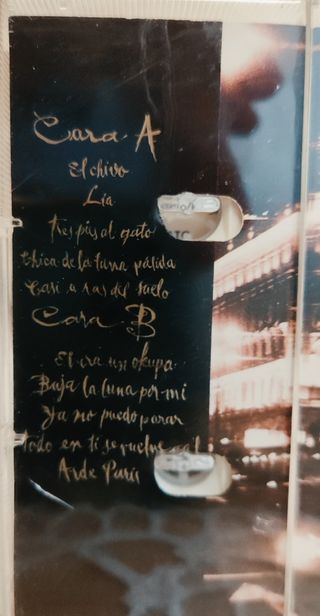 Cara A
El chivo
Lía
Tres pies al gato
Chica de la luna pálida
Casi a ras del suelo
Cara B
Él era un okupa
Baja la luna por mí
Ya no puedo parar
Todo en ti se vuelve
Arde París